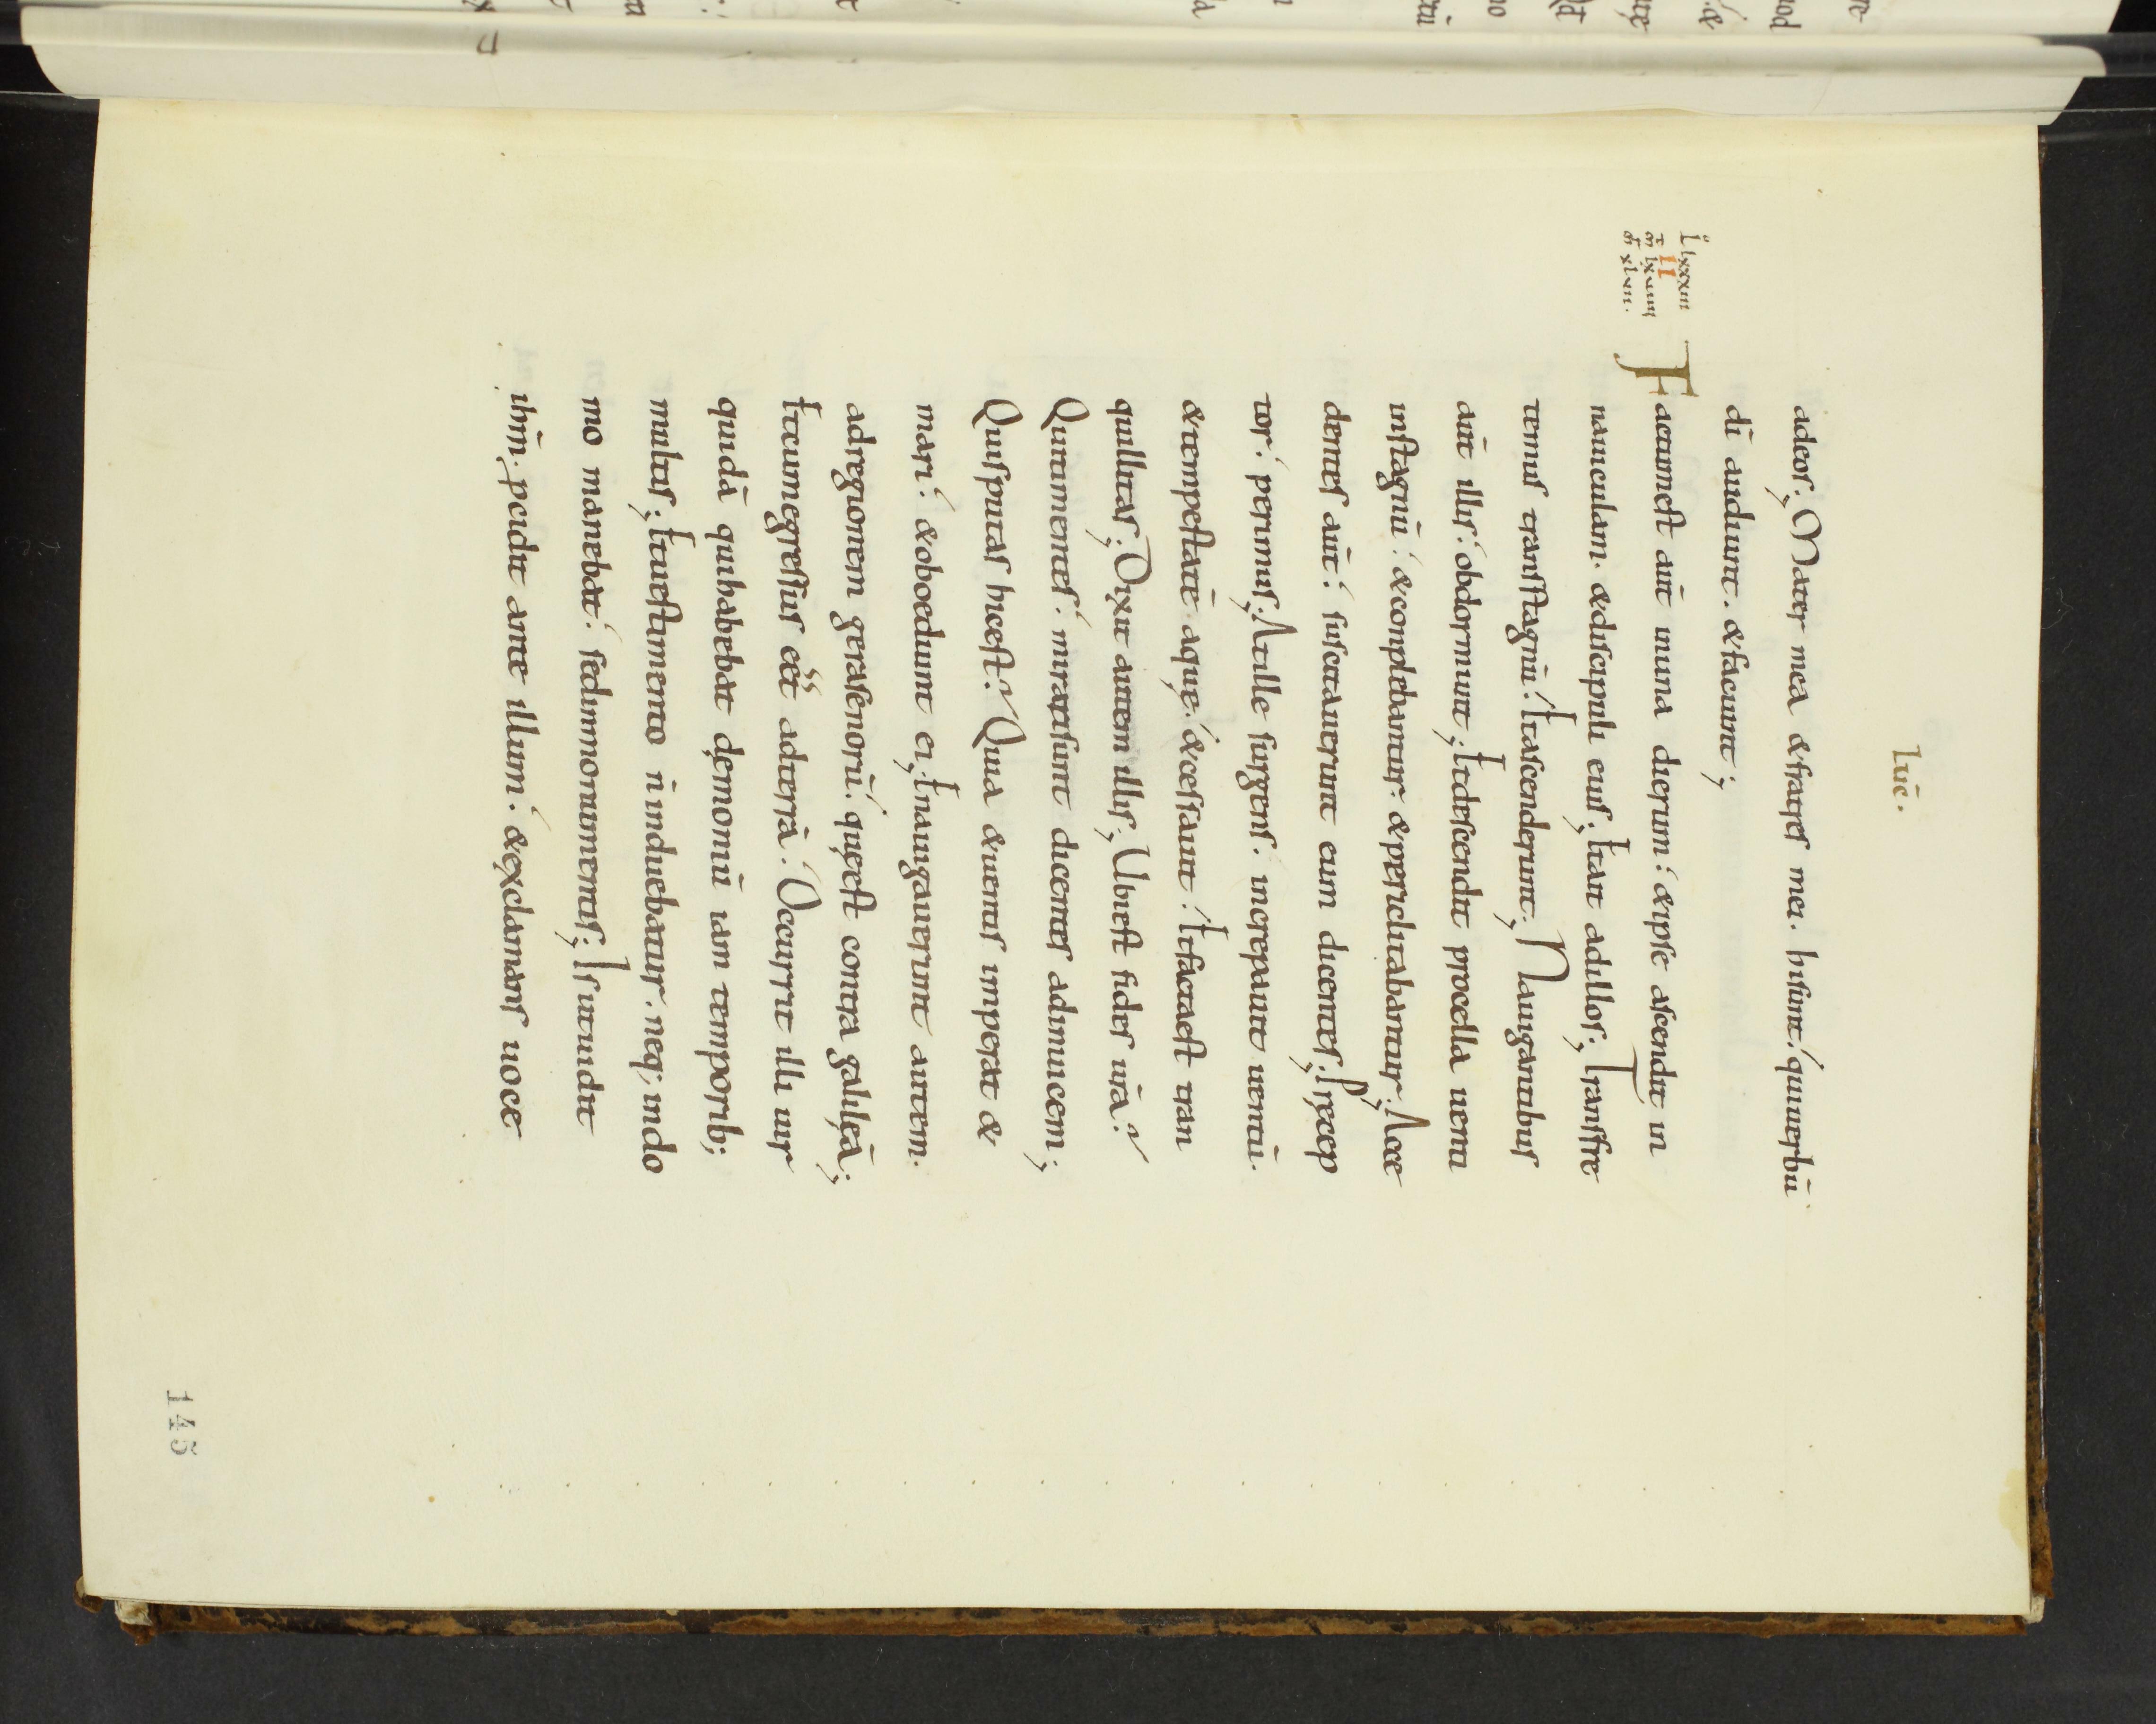 luc̄.
adeos; Mater mea &fratres mei. hisunt; quiuerbū
dī audiunt. &faciunt;
L̊ lxxxiii
II
m̄ lxviiii
m̄ xlvii.
Factumest aūt inuna dierum: &ipse ascendit in
nauiculam. &discipuli eius; Etait adillos; Transfre
temus transstagnū: Etascenderunt; Nauigantibus
aūt illis: obdormiuit; Etdescendit procella uenti
instagnū: &complebantur: &periclitabantur; Acce
dentes aūt: suscitauerunt eum dicentes; Precep
tor: perimus; Atille surgens. increpauit uentū.
&tempestatē aquę: &cessauit: Etfactaest tran
quillitas; Dixit autem illis; Ubiest fides ur̄a?
Quitimentes: miratisunt dicentes adinuicem;
Quisputas hicest? Quia &uentis imperat &
mari: &oboediunt ei; Etnauigauerunt autem.
adregionem gerasenorū: quęest contra galilęā;
Etcumegressus eēt adterrā. Occurrit illi uir
quidā quihabebat dęmoniū iam temporib;
multis; Etuestimento ñ induebatur. neq; indo
mo manebat: sedinmonumentis; Isutuidit
ihm̄. pcidit ante illum: &exclamans uoce
145